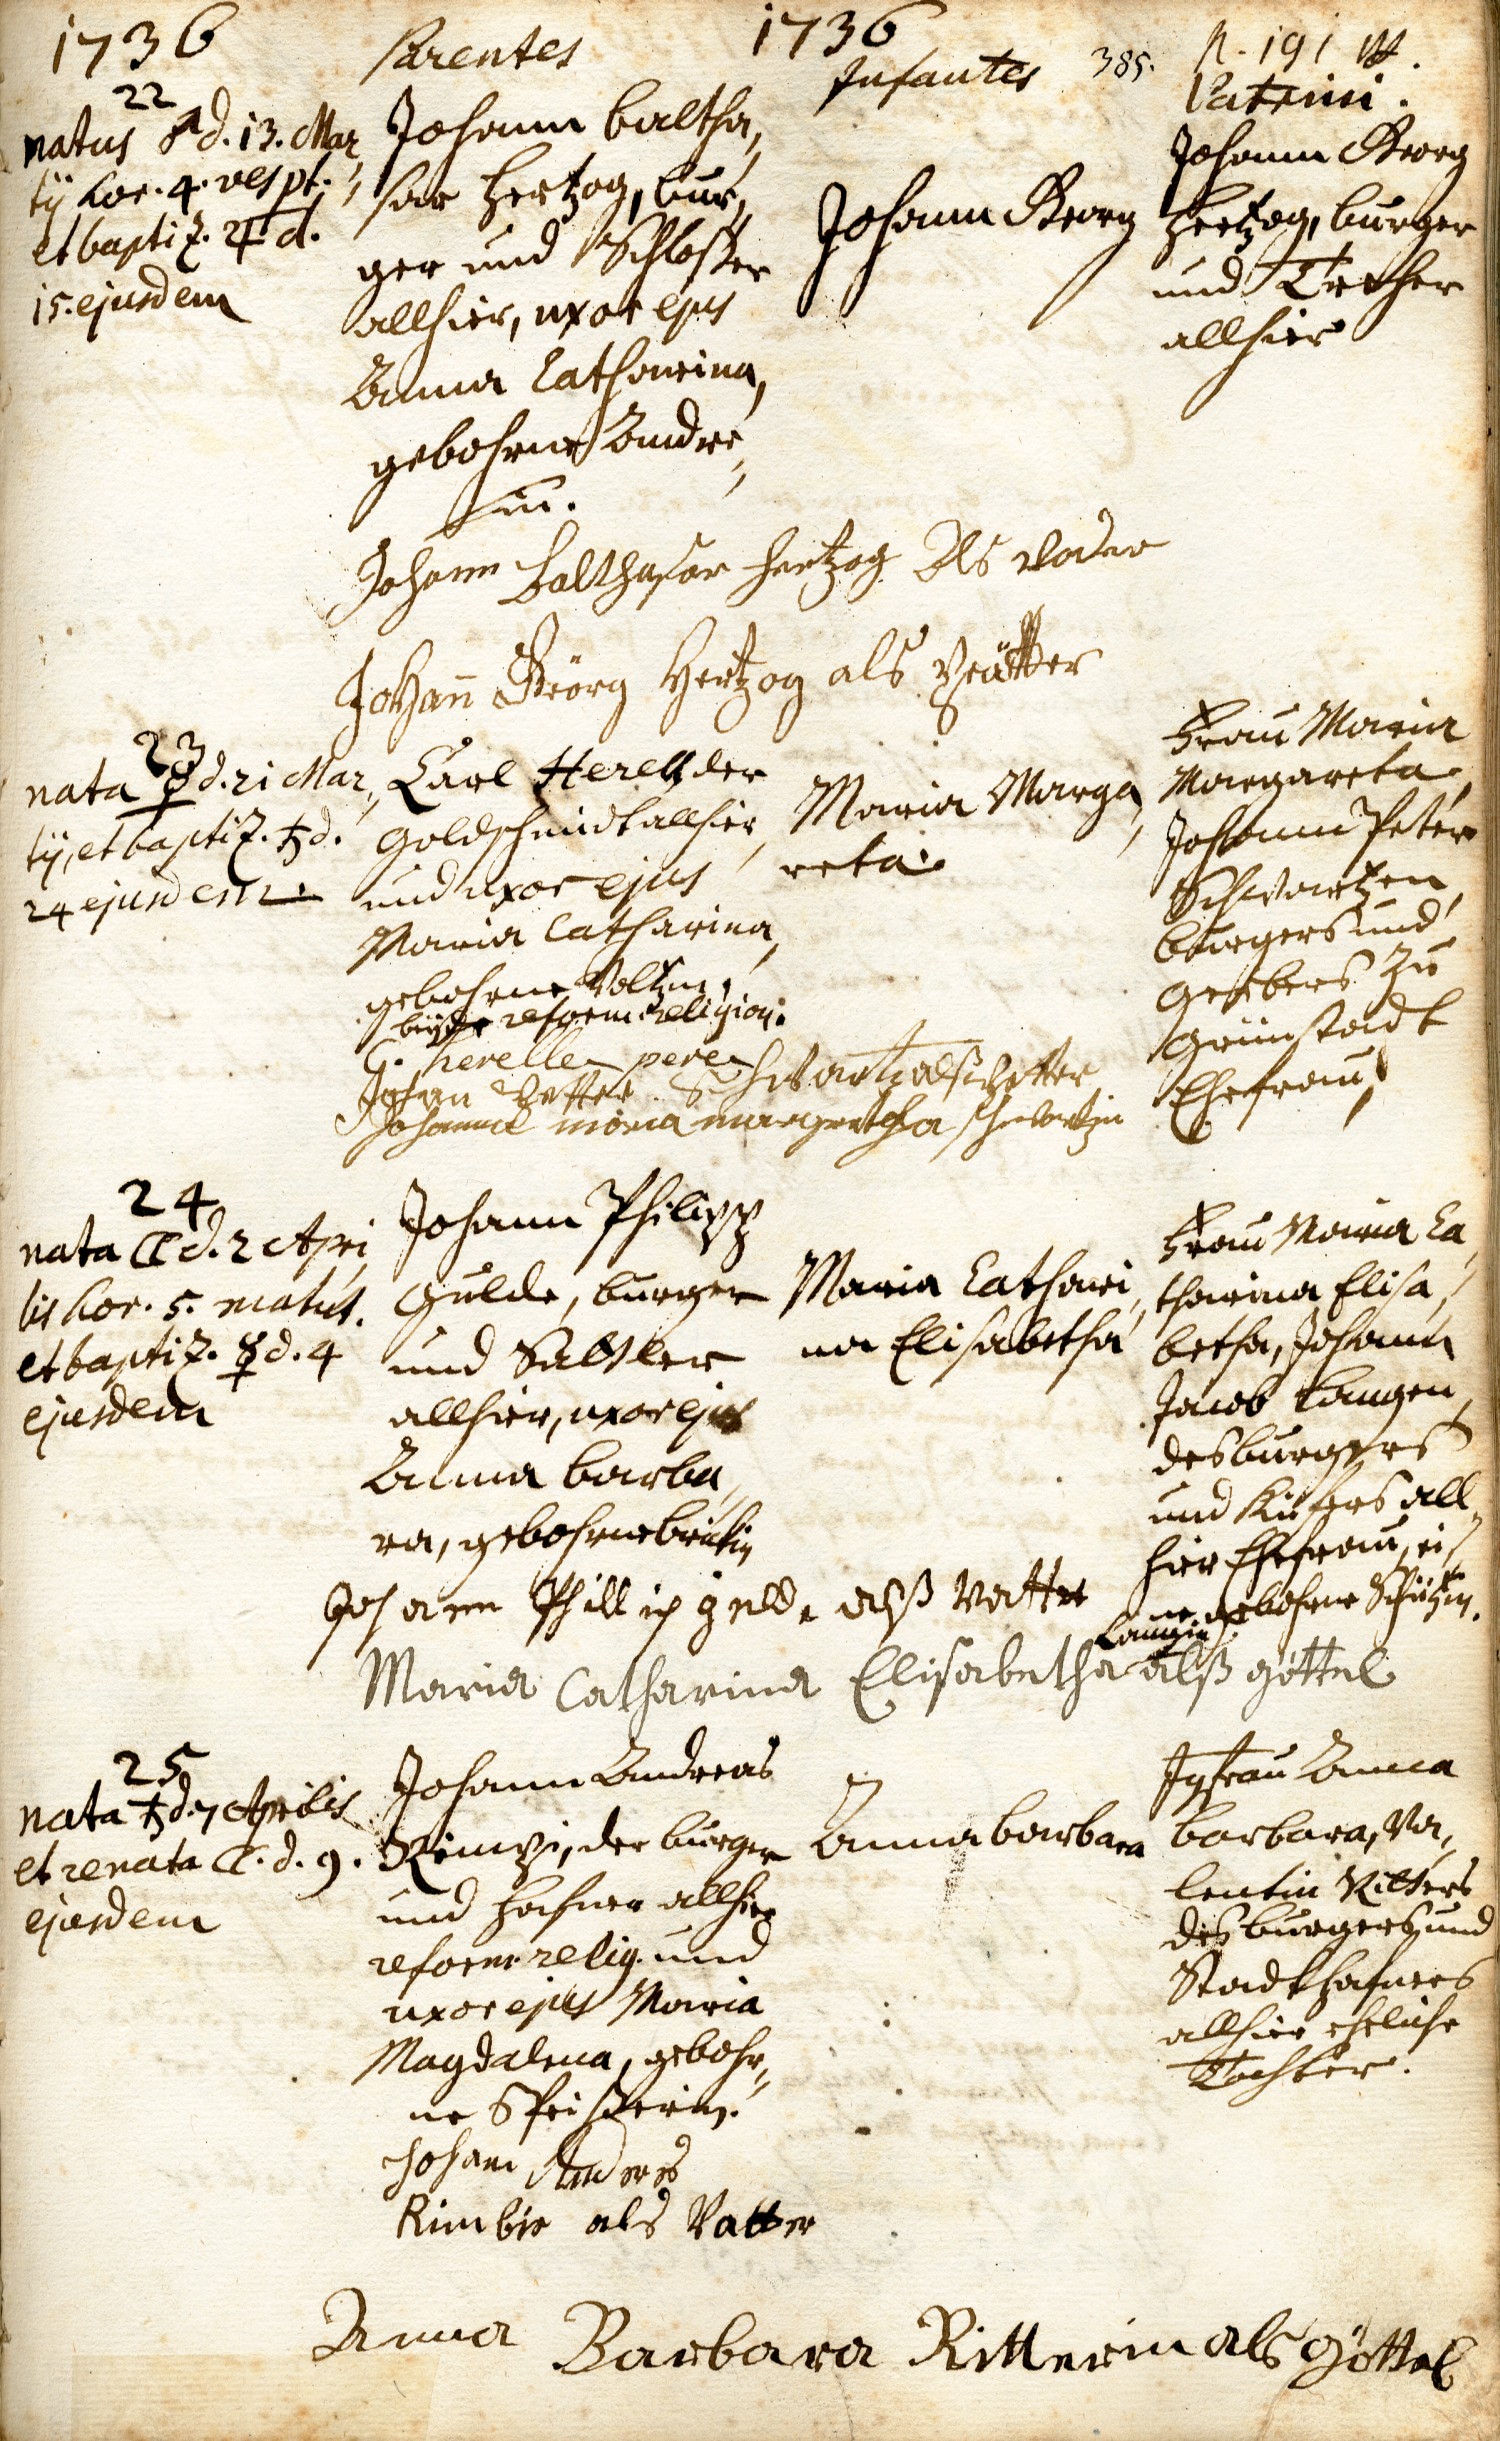 1736
Parentes
1736
Infantes
385.
Patrini.
22
natus ♂ d. 13. Mar,
tÿ hor. 4. vespt.
et baptiz. ♃ d.
15. ejusdem
Johann Baltha,
sar Hertzog, bur,
ger und Schlosser
allhier, uxor ejus
Anna Catharina,
gebohrne Andre,
sin.
Johann Georg
Johann Georg
Hertzog, burger
und Dreher
allhier
Johann Balthasar Hertzog Als Vader
Johann Geörg Hertzog als
23
nata ☿ d. 21 Mar,
tÿ, et baptiz. ♄ d.
24 ejusdem
Carl Herell, der
Goldschmidt allhier,
und uxor ejus
Maria Catharina,
gebohrne Voltzin,
beyde reform. religion.
Maria Marga,
reta
Frau Maria
Margareta,
Johann Peter
Schwartzen,
burgers und
Gerbers zu
Grünstadt
Ehefrau
G. herelle pere
Johan Petter Schwartz alß Petter
Johanna maria margretha schwartzin
24
nata ☾ d. 2 Apri,
lis hor. 5. matut.
et baptiz. ☿ d. 4
ejusdem
Johann Philipp
Gulde, burger
und Sattler
allhier, uxor ejus
Anna Barba,
ra, gebohrne
Maria Cathari,
na Elisabetha
Frau Maria Ca,
tharina Elisa,
betha, Johann
Jacob Langen,
des burgers
und Küfers all,
hier Ehefrau, ei,
ne gebohrne Schützin.
Johann Phillip gulde alß Vatter
Langin
Maria Catharina Elisabetha alß göttel
25
nata ♄ d. 7 Aprilis
et renata ☾. d. 9.
ejusdem
Johann Andreas
Rimpi, der burger
und Hafner allhier
reform. relig. und
uxor ejus Maria
Magdalena, gebohr,
ne Speisserin.
Anna Barbara
Jgfrau Anna
Barbara, Va,
lentin Ritters
des burgers und
Stadthafners
allhier eheliche
Tochter.
Johann Anderes
Rimbie als Vatter
Anna Barbara Ritterin als Göttel